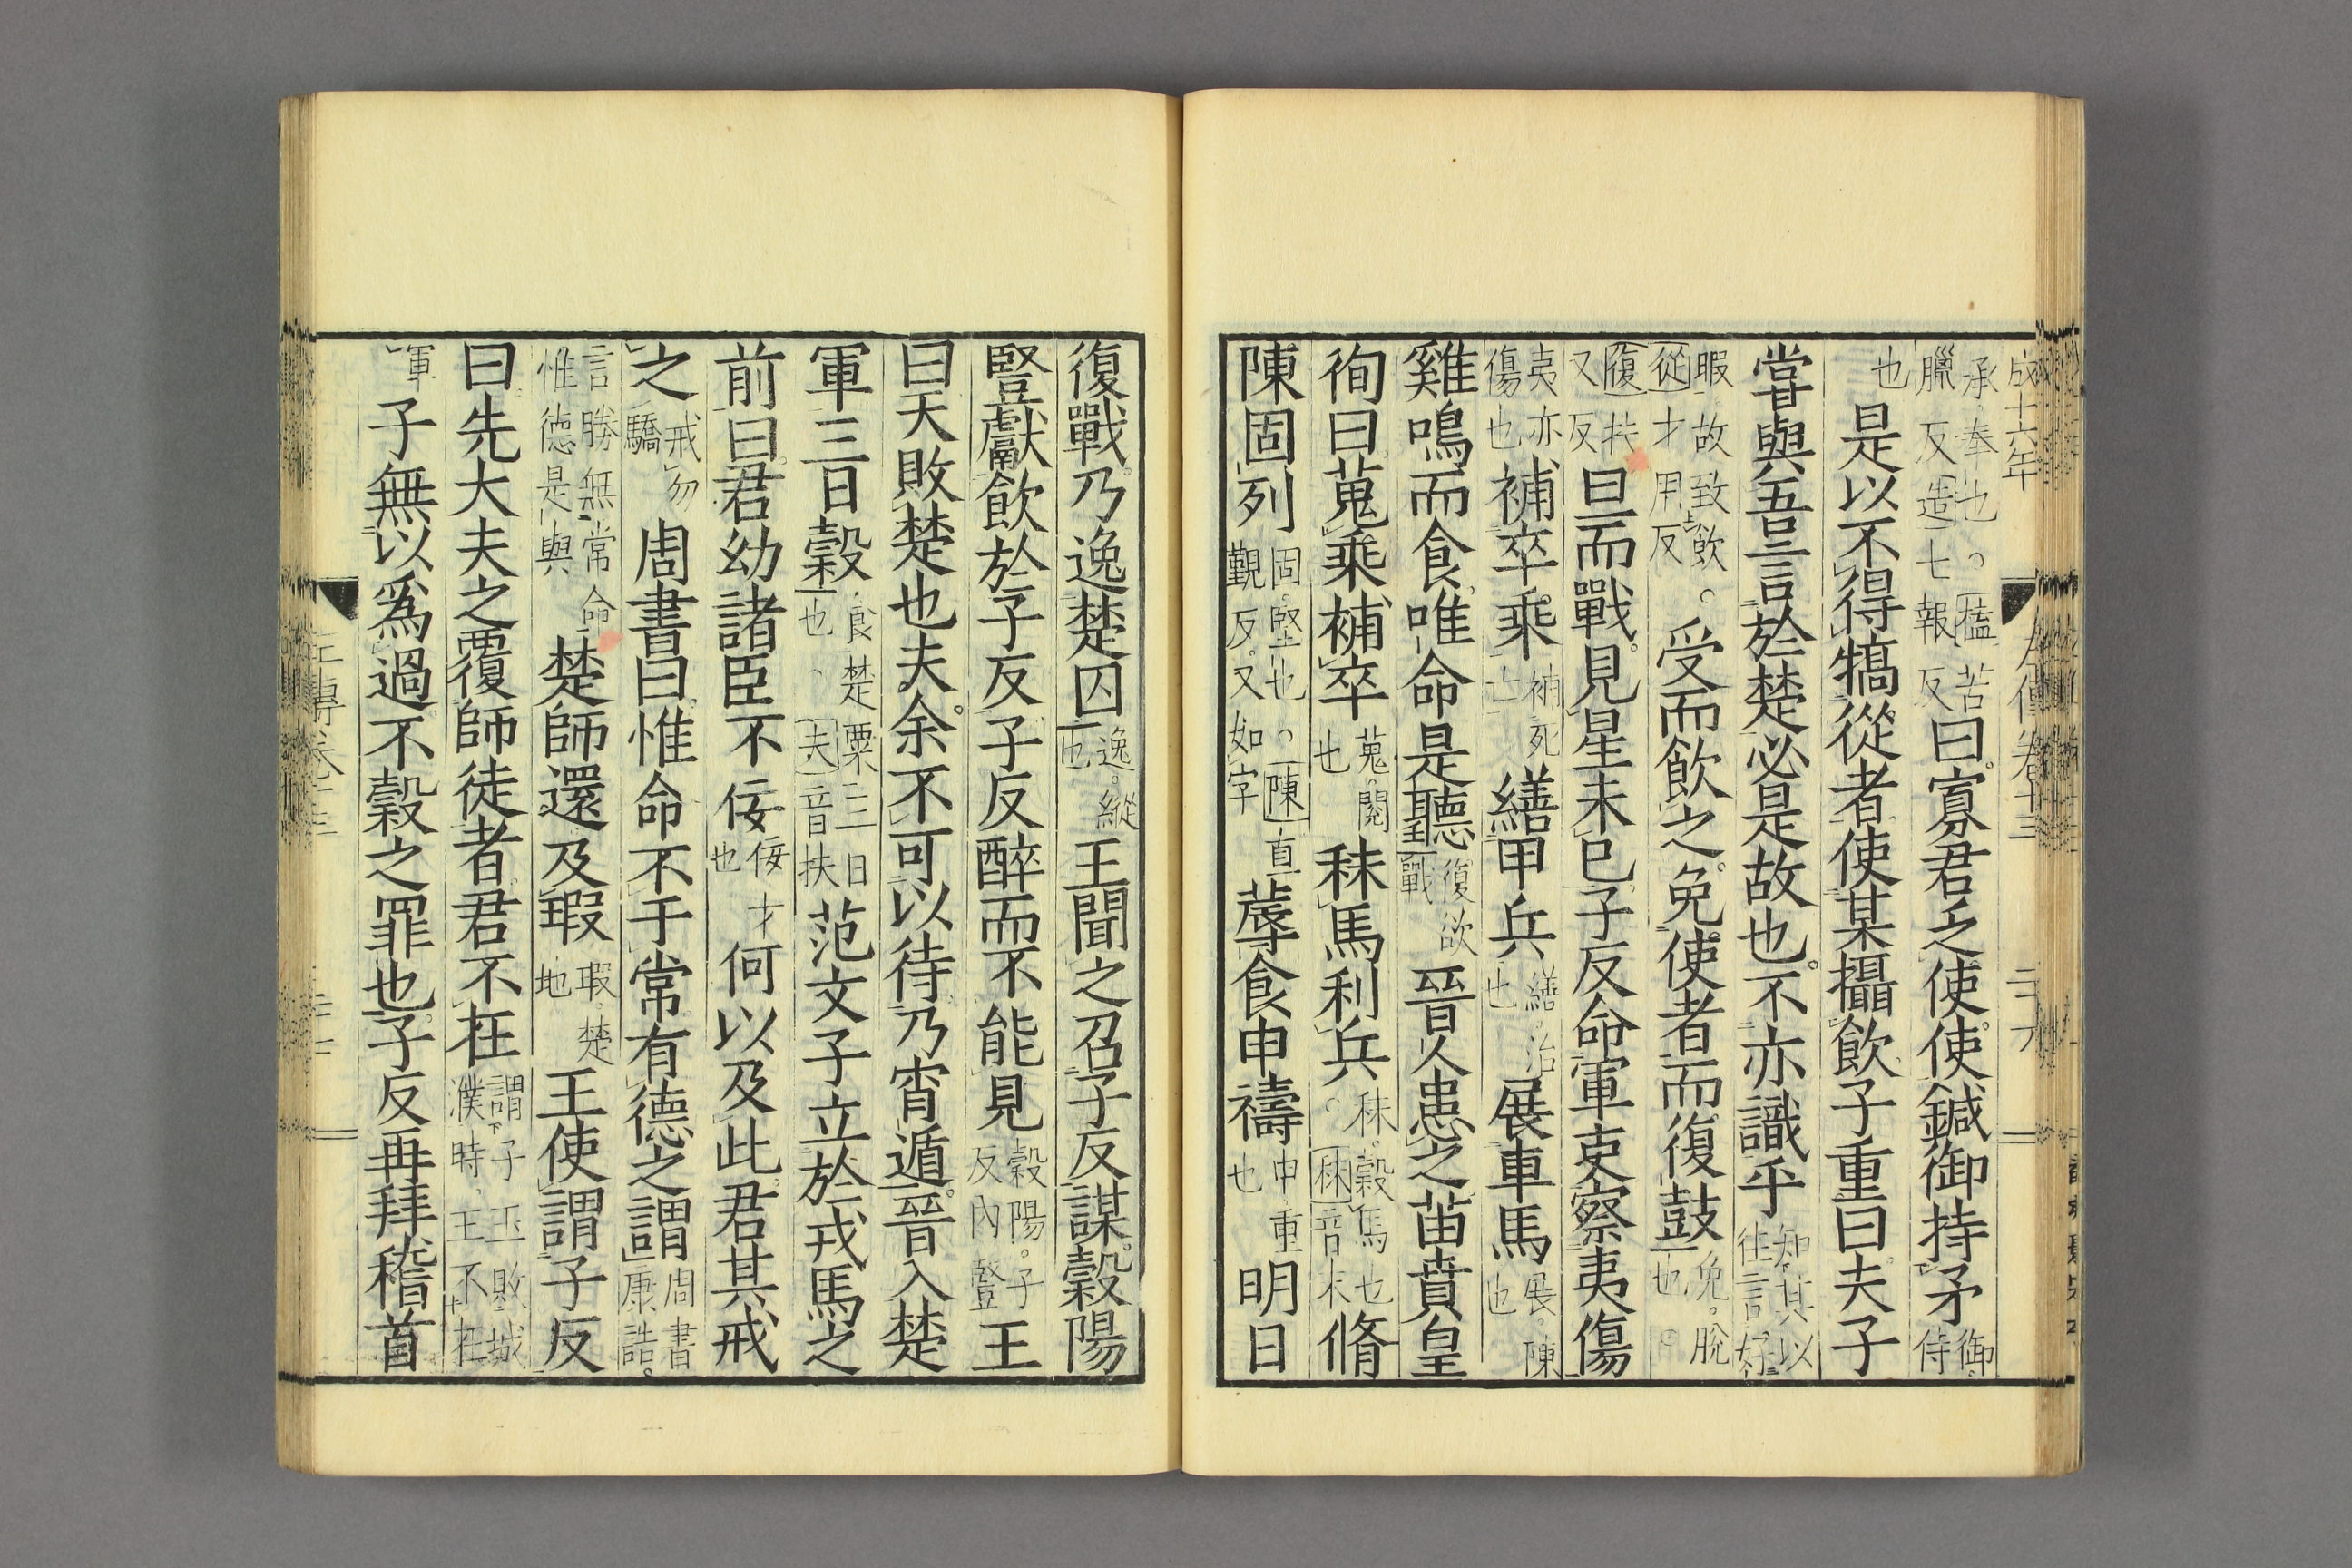 成十六年
承奉也。榼苦臘反造七報反曰寡君乏使使鍼御持矛御侍
也是以不得犒從者使某攝飲子重曰夫子
嘗與吾言於楚必是故也不亦識乎知其以往言好
暇故致飲從才用反。受而飲之免使者而復鼓免脫也。
復扶又反旦而戰見星未已子反命軍吏察夷傷
夷亦傷也補卒乘補死亡繕甲兵繕治也展車馬展陳也
雞鳴而食唯命是聽復欲戰晉人患之苗賁皇
徇曰蒐乘補卒蒐閱也秣馬利兵秣穀馬也。秣音末脩
陳固列固堅也。陳直覲反又如字蓐食申禱申重也明日
復戰乃逸楚囚逸縱也王聞之召子反謀穀陽
豎獻飲於子反子反醉而不能見穀陽子反內豎王
曰天敗楚也夫余不可以待乃宵遁晉入楚
軍三日穀食楚粟三日也。夫音扶范文子立於戎馬之
前曰君幼諸臣不佞佞才也何以及此君其戒
之戒勿驕周書曰惟命不于常有德之謂周書康誥。
言勝無常命惟德是與楚師還及瑕瑕楚地王使謂子反
曰先大夫之覆師徒者君不在謂子玉敗城濮時王不在
軍子無以為過不穀之罪也子反再拜稽首